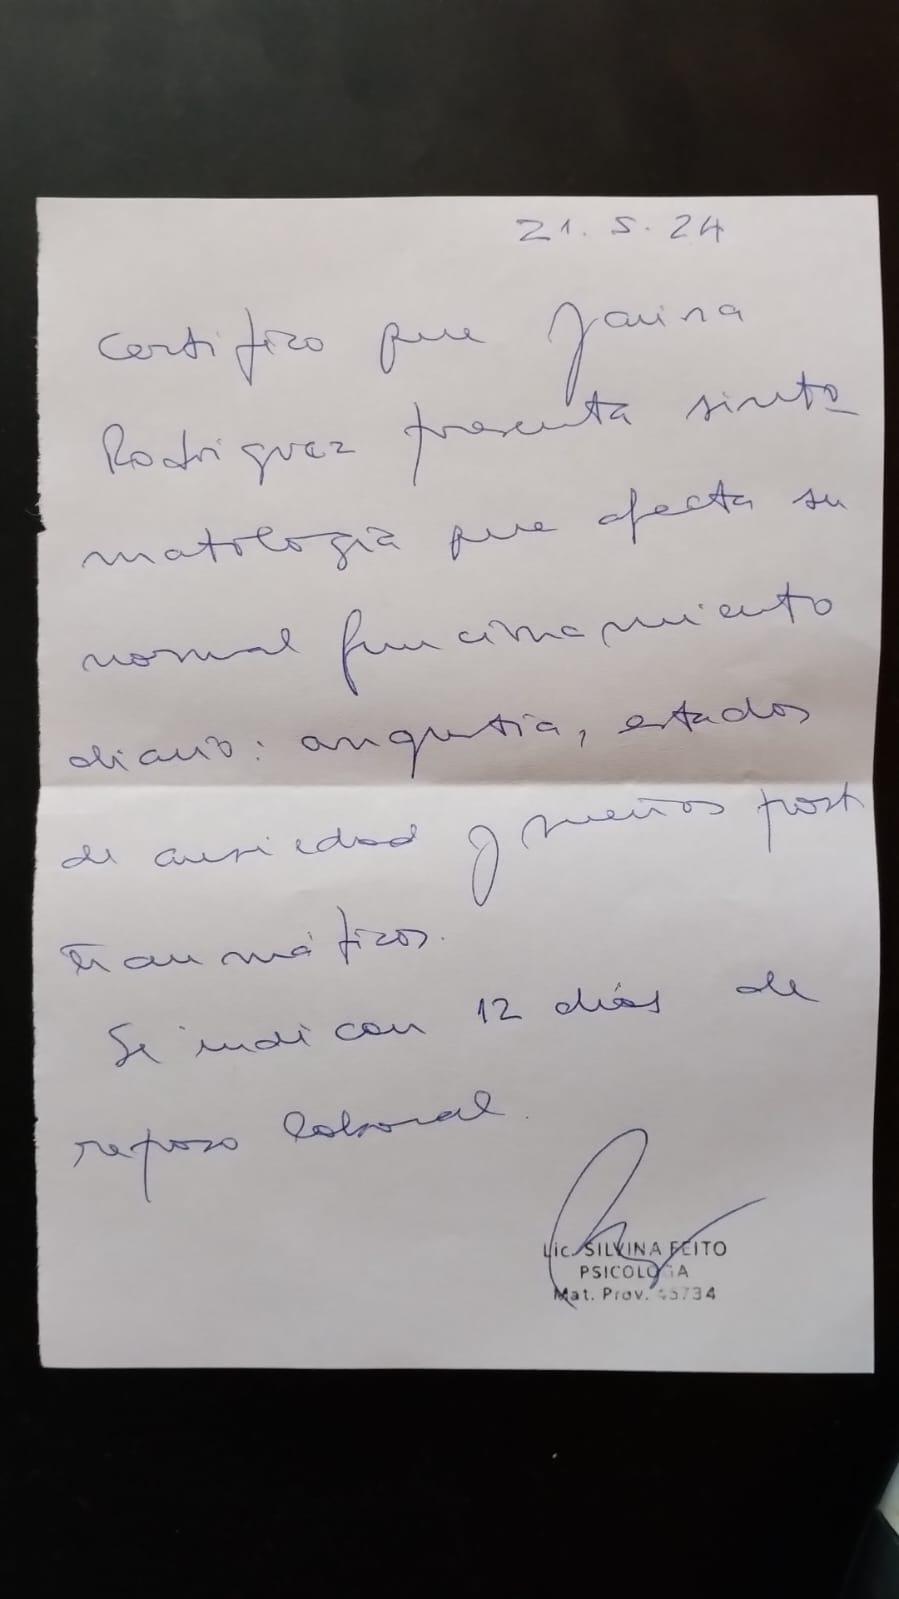 21.5.24
Certifico que Yanina
Rodriguez presenta sinto
matología que afecta su
normal funcionamiento
diario: angustia, estados
de ansiedad y sueños post
traumáticos.
Se indican 12 días de
reposo laboral.
Lic. SILVINA FEITO
PSICOLOGA
Mat. Prov. 45734